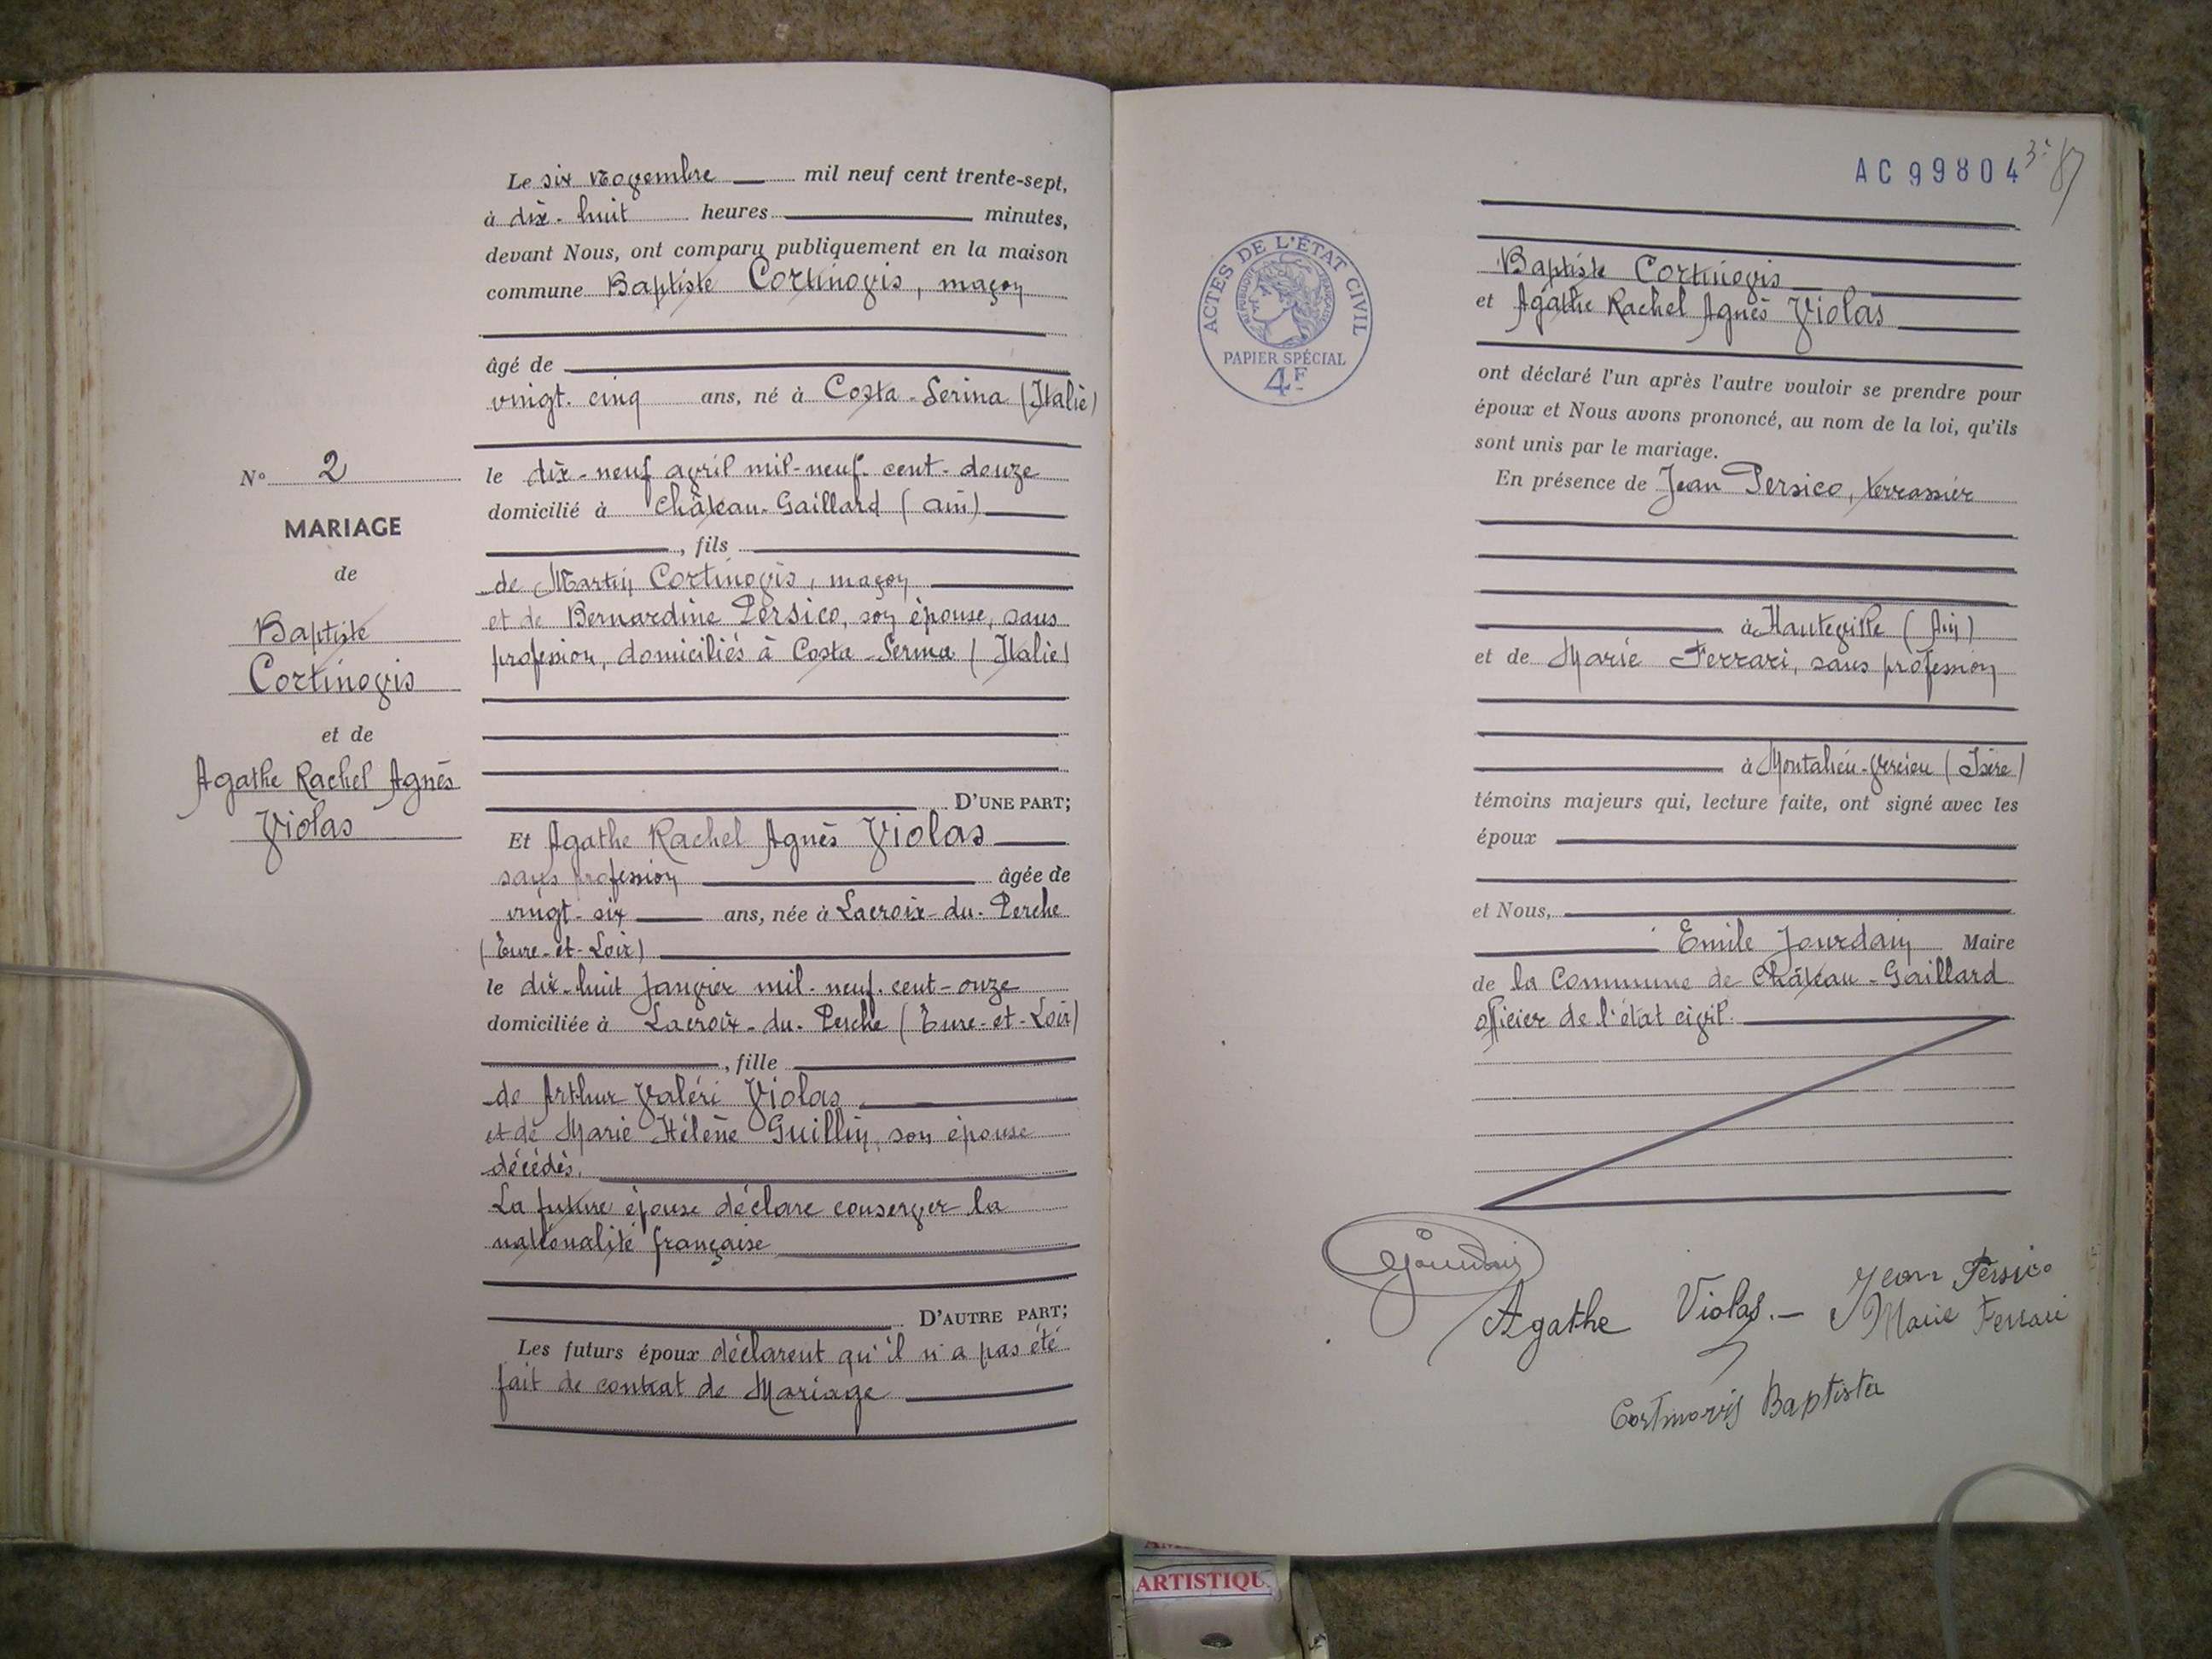 Le six Novembre mil neuf cent trente-sept,
à dix-huit heures minutes,
devant Nous, ont comparu publiquement en la maison
commune Baptiste Cortinovis, maçon
âgé de
vingt-cinq ans, né à Costa-Serina (Italie)
le dix-neuf avril mil-neuf-cent-douze
domicilié à Château-Gaillard (Ain)
, fils
de Martin Cortinovis, maçon
et de Bernardine Persico, son épouse, sans
profession, domiciliés à Costa-Serina (Italie)
D'UNE PART;
Et Agathe Rachel Agnès Violas
sans profession âgée de
vingt-six ans, née à Lacroix-du-Perche
(Eure-et-Loir)
le dix-huit Janvier mil-neuf-cent-onze
domiciliée à Lacroix-du-Perche (Eure-et-Loir)
, fille
de Arthur Valéri Violas
et de Marie Hélène Guillin, son épouse
décédés.
La future épouse déclare conserver la
nationalité française
D'AUTRE PART;
Les futurs époux déclarent qu'il n'a pas été
fait de contrat de Mariage
N° 2
MARIAGE
de
Baptiste
Cortinovis
et de
Agathe Rachel Agnès
Violas
AC 99804
ACTES DE L'ÉTAT CIVIL
RÉPUBLIQUE FRANÇAISE
PAPIER SPÉCIAL
4F
Baptiste Cortinovis
et Agathe Rachel Agnès Violas
ont déclaré l'un après l'autre vouloir se prendre pour
époux et Nous avons prononcé, au nom de la loi, qu'ils
sont unis par le mariage.
En présence de Jean Persico, terrassier
à Hauteville (Ain)
et de Marie Ferrari, sans profession
à Montalieu-Vercieu (Isère)
témoins majeurs qui, lecture faite, ont signé avec les
époux
et Nous,
Emile Jourdain Maire
de la Commune de Château-Gaillard
officier de l'état civil.
Jourdain
Agathe Violas.
Jean Persico
Marie Ferrari
Cortinovis Baptista
ARTISTIQU